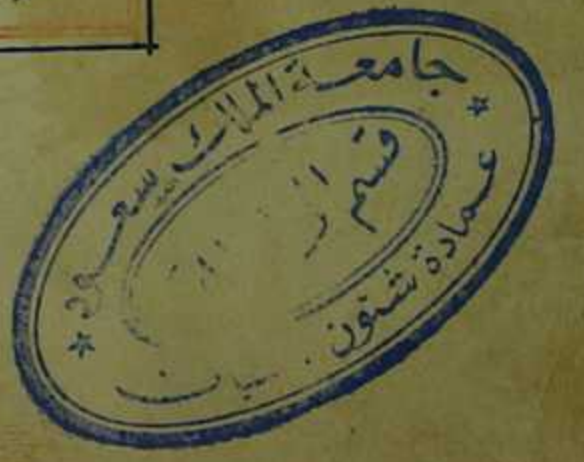 جامعة الملك سعود
قسم
عمادة شئون